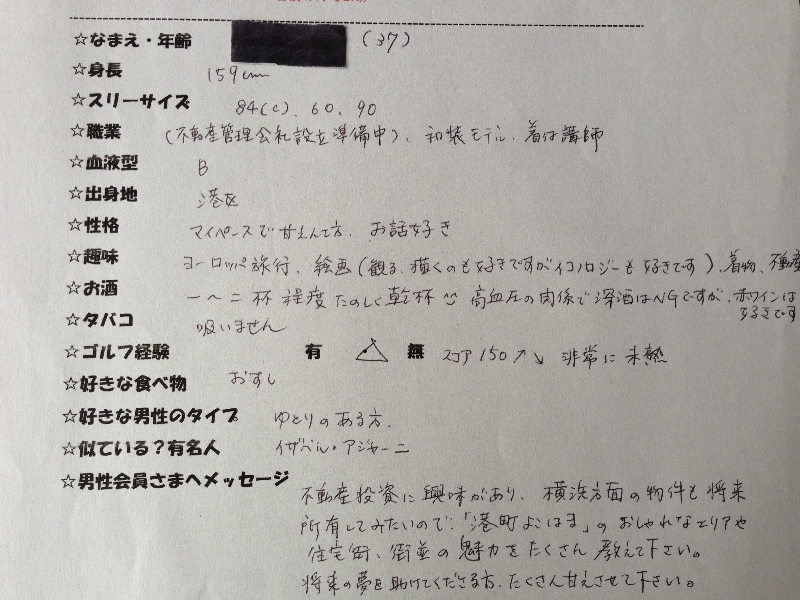 ☆なまえ・年齢 (37)
☆身長 159cm
☆スリーサイズ 84(C). 60. 90
☆職業 (不動産管理会社設立準備中)、和装モデル、着付講師
☆血液型 B
☆出身地 港区
☆性格 マイペースで甘えんぼう、お話好き
☆趣味 ヨーロッパ旅行、絵画(観る、描くのも好きですがイコノロジーも好きです)、着物、不動産
☆お酒 一〜二杯程度たのしく乾杯 高血圧の関係で深酒はNGですが、赤ワインは
好きです
☆タバコ 吸いません
☆ゴルフ経験 有 △ 無 スコア150↗↘ 非常に未熟
☆好きな食べ物 おすし
☆好きな男性のタイプ ゆとりのある方.
☆似ている?有名人 イザベル・アジャーニ
☆男性会員さまへメッセージ 不動産投資に興味があり、横浜方面の物件も将来
所有してみたいので、「港町よこはま」のおしゃれなエリアや
住宅街、街並の魅力をたくさん教えて下さい。
将来の夢を助けてくださる方、たくさん甘えさせて下さい。